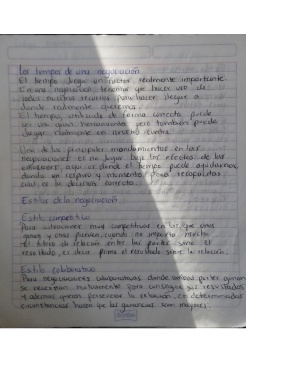 Los tiempos de una negociación
El tiempo juega un factor realmente importante.
En una negociación, tenemos que hacer uso de
todos nuestros recursos para hacer llegar a
donde realmente queremos.
El tiempo, utilizado de forma correcta puede
ser una gran herramienta pero también puede
jugar claramente en nuestra contra.
Uno de los principales mandamientos en las
negociaciones es no jugar bajo los efectos de las
aquí es donde el tiempo puede ayudarnos,
dando un respiro y momento para recapacitar
cual es la decisión correcta.
Estilos de la negociación
Estilo competitivo
Para situaciones muy competitivas en las que unos
ganan y otros pierden, cuando no importa mucho
el futuro de relación entre las partes sino el
resultado, es decir prima el resultado sobre la relación.
Estilo colaborativo
Para negociaciones colaborativas donde ambas partes ganan
se necesitan mutuamente para conseguir sus resultados
y además quieren preservar la relación, en determinadas
circunstancias hacen que las ganancias sean mayores.